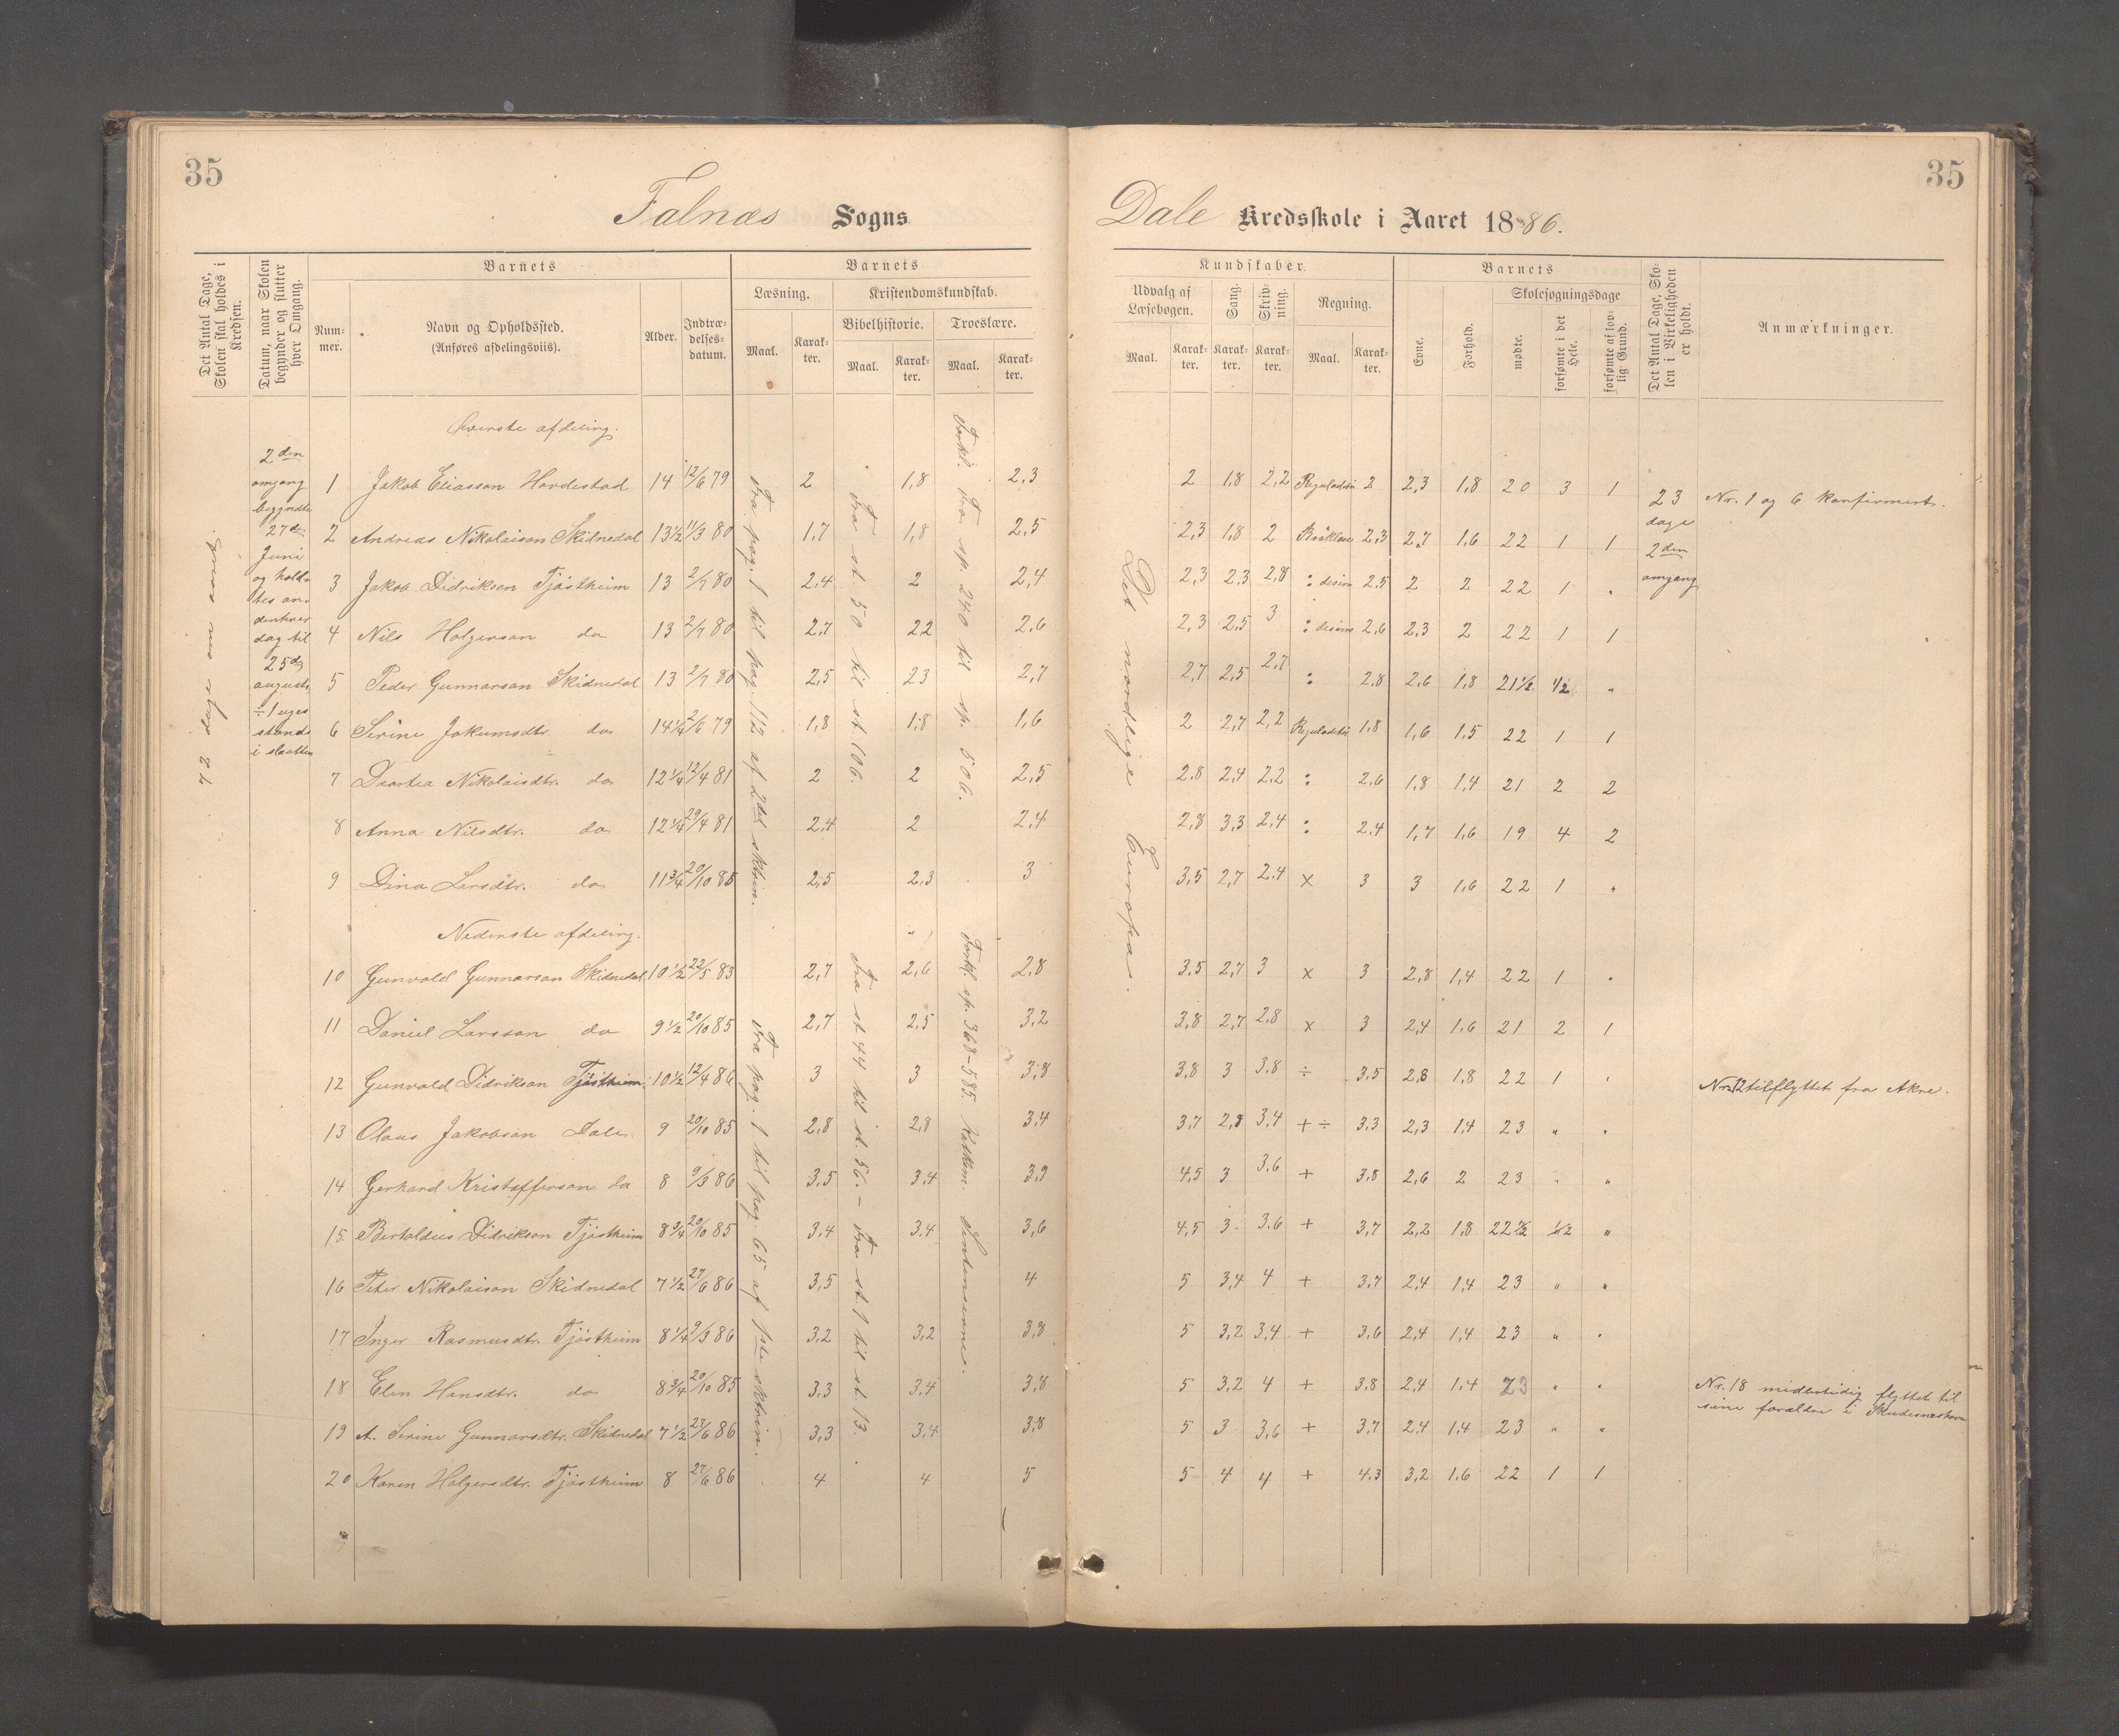 35
35
Falnæs Sogns
Dale Kredsskole i Aaret 1886.
Det Antal Dage, Skolen skal holdes i Kredsen.
Datum, naar Skolen begynder og slutter hver Omgang.
Barnets
Nummer.
Navn og Opholdssted.
(Anføres afdelingsviis).
Alder.
Indtrædelsesdatum.
Barnets
Læsning.
Kristendomskundskab.
Bibelhistorie.
Troeslære.
Maal.
Karakter.
Maal.
Karakter.
Maal.
Karakter.
Kundskaber.
Udvalg af Læsebogen.
Sang.
Skrivning.
Regning.
Maal.
Karakter.
Karakter.
Karakter.
Maal.
Karakter.
Barnets
Evne.
Forhold.
Skolesøgningsdage
mødte.
forsømte i det Hele.
forsømte af lovlig Grund.
Det Antal Dage, Skolen i Virkeligheden er holdt.
Anmærkninger.
72 dage om aaret.
2den
omgang
begyndte
27de
Juni
og holdtes
andenhver
dag til
25de
august,
÷ 1 uges
stands
i slaatten
Fra pag. 1 til pag. 112 af 2det
Fra st. 50 til st. 106.
Forkl. Fra sp. 240 til sp. 506.
Det nordlige Europa.
Øverste afdeling.
1 Jakob Eliasson Hordestad 14 12/6 79 2 1,8 2,3 2 1,8 2,2 2 2,3 1,8 20 3 1
2 Andreas Nikolaison Skidnedal 13½ 11/3 80 1,7 1,8 2,5 2,3 1,8 2 2,3 2,7 1,6 22 1 1
3 Jakob Didrikson Tjöstheim 13 2/7 80 2,4 2 2,4 2,3 2,3 2,8 : desim 2,5 2 2 22 1 "
4 Nils Holgerson do 13 2/7 80 2,7 2,2 2,6 2,3 2,5 3 : desim 2,6 2,3 2 22 1 1
5 Peder Gunnarson Skidnedal 13 2/7 80 2,5 2,3 2,7 2,7 2,5 2,7 : 2,8 2,6 1,8 21½ 1½ "
6 Serine Jakumsdtr. do 14¼ 2/6 79 1,8 1,8 1,6 2 2,7 2,2 1,8 1,6 1,5 22 1 1
7 Dortea Nikolaisdtr. do 12¼ 12/4 81 2 2 2,5 2,8 2,4 2,2 : 2,6 1,8 1,4 21 2 2
8 Anna Nilsdtr. do 12¼ 29/4 81 2,4 2 2,4 2,8 3,3 2,4 : 2,4 1,7 1,6 19 4 2
9 Dina Larsdtr. do 11¾ 20/10 85 2,5 2,3 3 3,5 2,7 2,4 × 3 3 1,6 22 1 "
23
dage
2den
omgang
Nr. 1 og 6 konfirmert.
Nederste afdeling.
Fra pag. 1 til pag. 65 af 1ste
Fra st. 44 til st. 56. – Fra st. 1 til st. 13.
Forkl. sp. 368–585.
10 Gunvald Gunnarson Skidnedal 10½ 22/5 83 2,7 2,6 2,8 3,5 2,7 3 × 3 2,8 1,4 22 1 "
11 Daniel Larsson do 9½ 20/10 85 2,7 2,5 3,2 3,8 2,7 2,8 × 3 2,4 1,6 21 2 1
12 Gunvald Didrikson Tjöstheim 10½ 12/4 86 3 3 3,8 3,8 3 3,8 ÷ 3,5 2,8 1,8 22 1 "
Nr. 12 tilflyttet fra Akre.
13 Olaus Jakobson Dale 9 20/10 85 2,8 2,8 3,4 3,7 2,8 3,4 + ÷ 3,3 2,3 1,4 23 " "
14 Gerhard Kristofferson do 8 9/3 86 3,5 3,4 3,9 4,5 3 3,6 + 3,8 2,6 2 23 " "
15. Bertoldus Didrikson Tjöstheim 8¾ 20/10 85 3,4 3,4 3,6 4,5 3 3,6 + 3,7 2,2 1,8 22½ ½ "
16 Peter Nikolaison Skidnedal 7½ 27/6 86 3,5 4 5 3,4 4 + 3,7 2,4 1,4 23 " "
17 Inger Rasmusdtr. Tjöstheim 8¼ 9/3 86 3,2 3,2 3,8 5 3,2 3,4 + 3,6 2,4 1,4 23 " "
18 Elen Hansdtr. do 8¾ 20/10 85 3,3 3,4 3,8 5 3,2 4 + 3,8 2,4 1,4 23 " "
Nr. 18 midlertidig flyttet til
sine forældre i Skudesneshavn
19 A. Serine Gunnarsdtr. Skidnedal 7½ 27/6 86 3,3 3,4 3,8 5 3 3,6 + 3,7 2,4 1,4 23 " "
20 Karen Holgersdtr. Tjöstheim 8 27/6 86 4 4 5 5 4 4 + 4,3 3,2 1,6 22 1 1